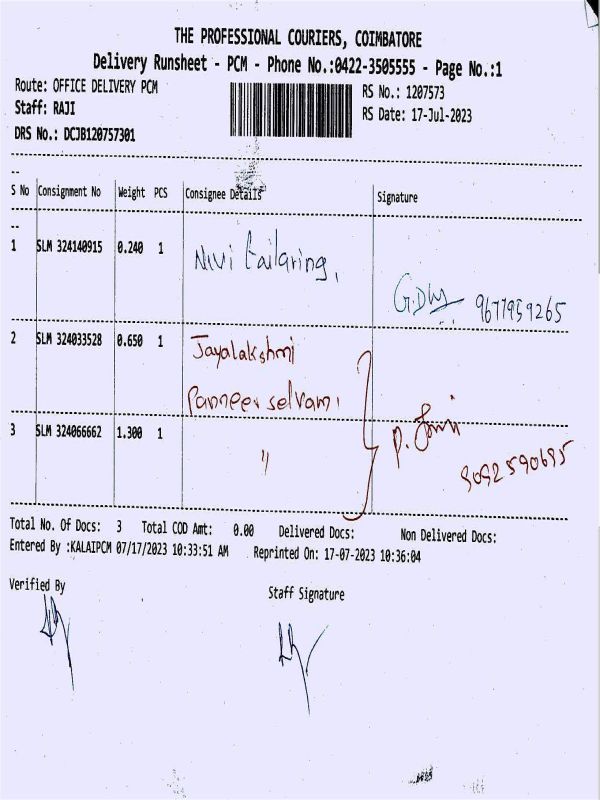 THE PROFESSIONAL COURIERS, COIMBATORE
Delivery Runsheet - PCM - Phone No.:0422-3505555 - Page No.:1
Route: OFFICE DELIVERY PCM RS No.: 1207573
Staff: RAJI RS Date: 17-Jul-2023
DRS No.: DCJB120757301
S No Consignment No Weight PCS Consignee Details Signature
1 SLM 324140915 0.240 1 Nivi tailaring,
9677959265
2 SLM 324033528 0.650 1 Jayalakshmi
Panneerselvam,
3 SLM 324066662 1.300 1 "
9092590695
Total No. Of Docs: 3 Total COD Amt: 0.00 Delivered Docs: Non Delivered Docs:
Entered By :KALAIPCM 07/17/2023 10:33:51 AM Reprinted On: 17-07-2023 10:36:04
Verified By Staff Signature